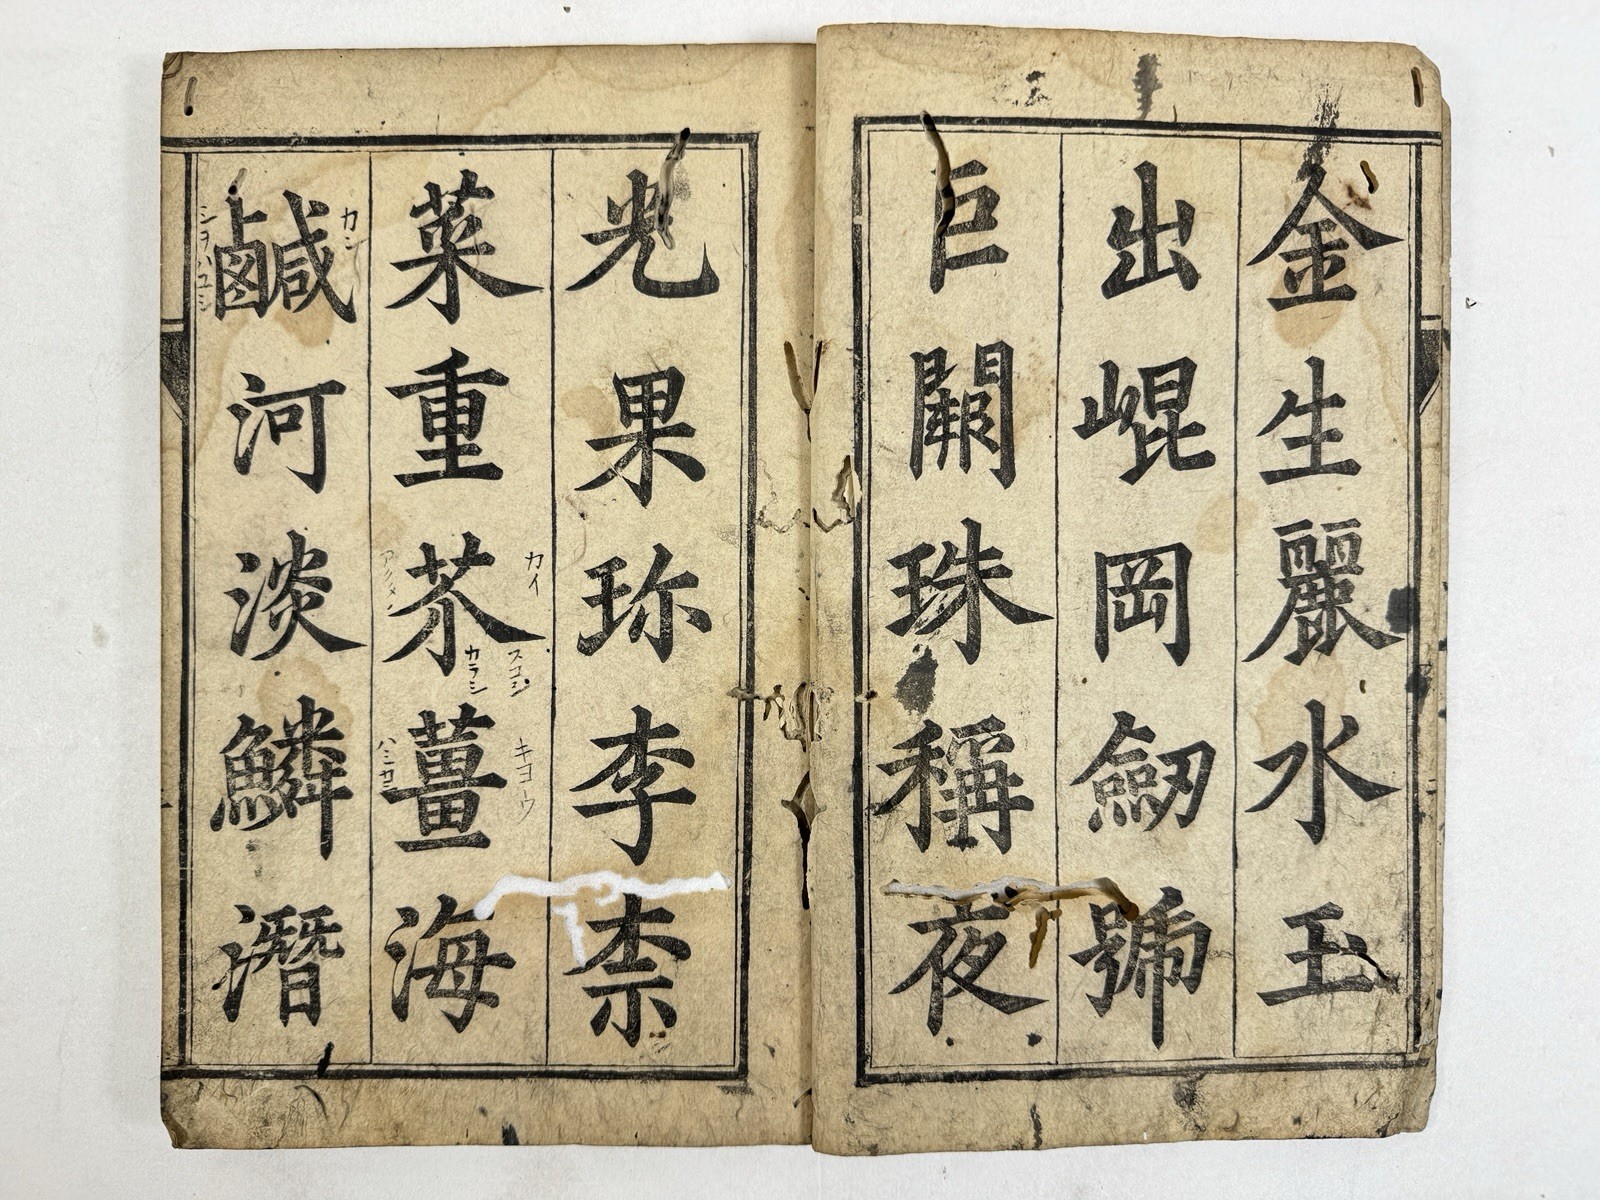 金生麗水玉
出崐岡劒號
巨闕珠稱夜
光果珎李柰
菜重芥薑海
カイ
スコシ
カラシ
キヨーウ
ハシカミ
鹹河淡鱗潛
カン
シヲハユシ